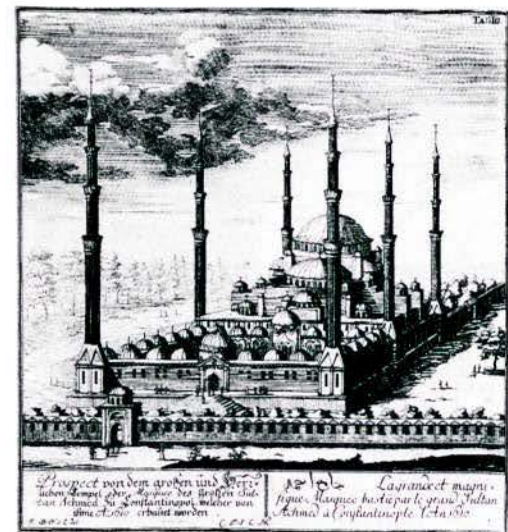 Prospect von dem großen und Herr-
lichen Tempel oder Mosquee des Großen Sul-
tan Achmed zu Constantinopel welcher von
ihme Aº 1610 erbauet worden
La grance et magni-
fique Mosquee bastie par le grand Sultan
Achmed a Constantinople l'ota 1610